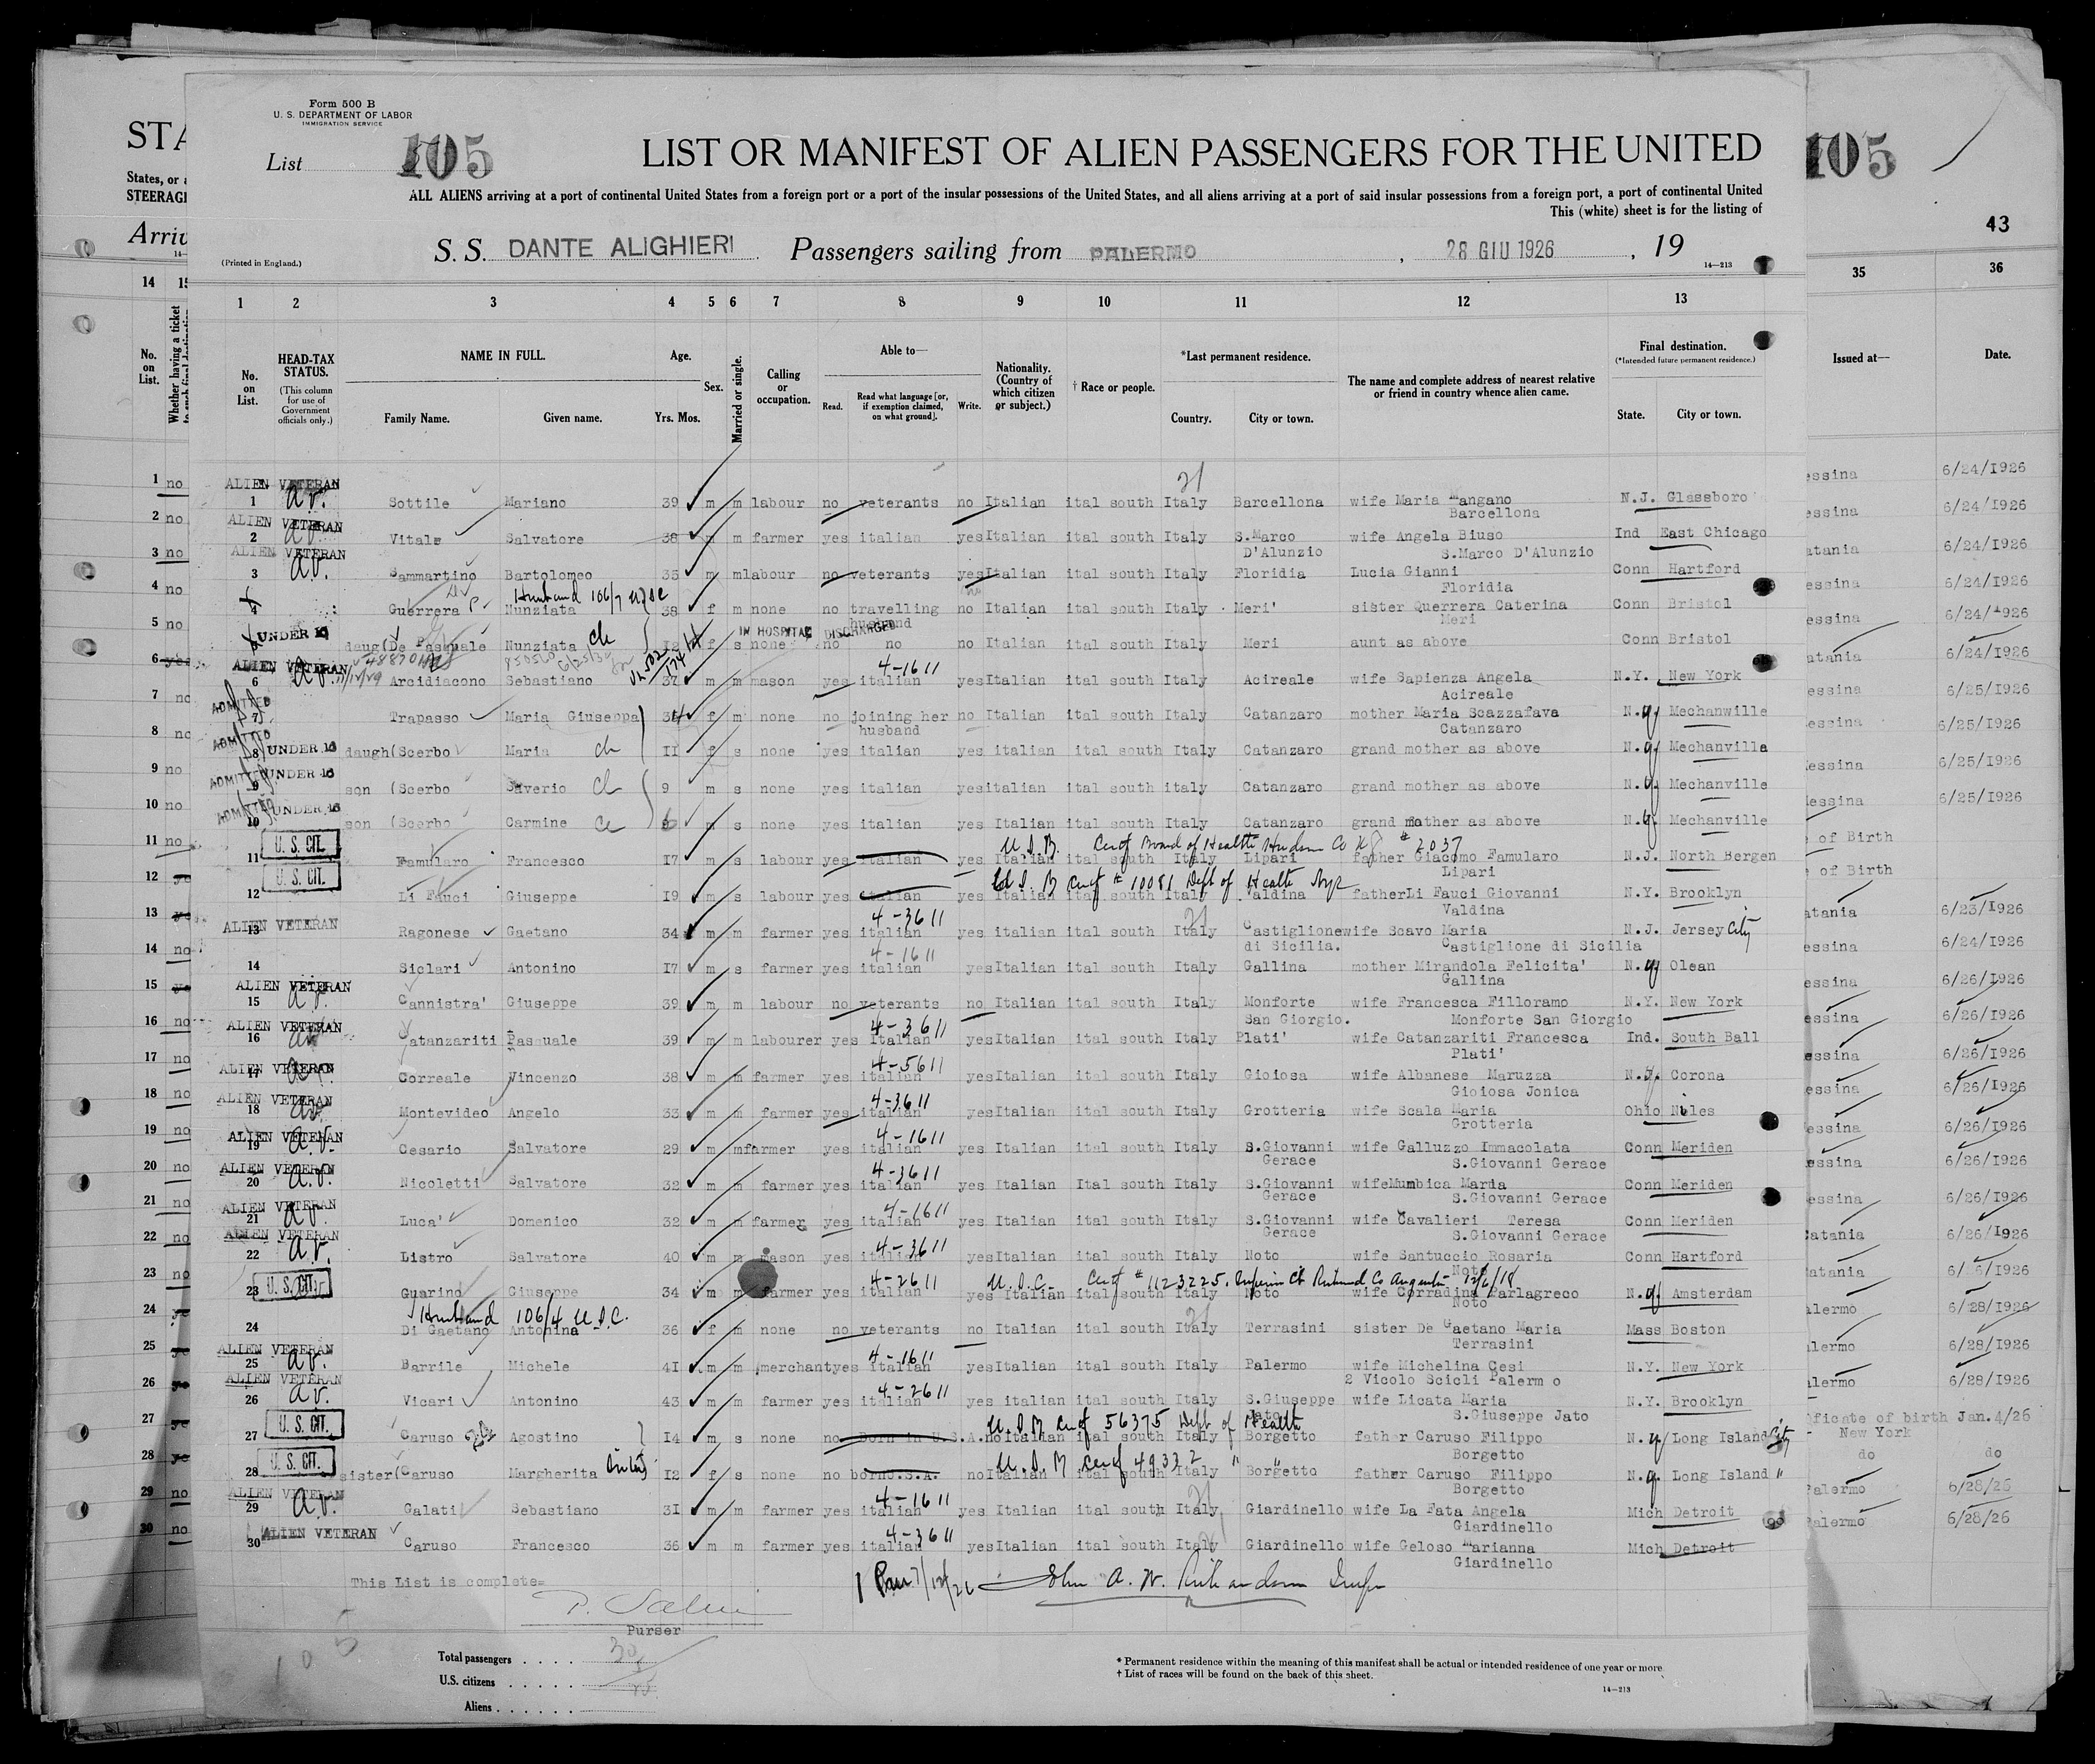 Form 500 B
U. S. DEPARTMENT OF LABOR
IMMIGRATION SERVICE
List 105
LIST OR MANIFEST OF ALIEN PASSENGERS FOR THE UNITED
ALL ALIENS arriving at a port of continental United States from a foreign port or a port of the insular possessions of the United States, and all aliens arriving at a port of said insular possessions from a foreign port, a port of continental United
This (white) sheet is for the listing of
STA
States, or a
STEERAGE
Arriv
105
43
(Printed in England.)
S. S. DANTE ALIGHIERI Passengers sailing from PALERMO , 28 GIU 1926 , 19
14—213
14 15 1 2 3 4 5 6 7 8 9 10 11 12 13 35 36
No. on List.
Whether having a ticket
No. on List.
HEAD-TAX STATUS.
(This column for use of Government officials only.)
NAME IN FULL.
Family Name. Given name.
Age.
Yrs. Mos.
Sex.
Married or single.
Calling or occupation.
Able to—
Read. Read what language [or, if exemption claimed, on what ground]. Write.
Nationality. (Country of which citizen or subject.)
† Race or people.
*Last permanent residence.
Country. City or town.
The name and complete address of nearest relative or friend in country whence alien came.
Final destination.
(*Intended future permanent residence.)
State. City or town.
Issued at—
Date.
ALIEN VETERAN
1 a.v. Sottile Mariano 39 m m labour no veterans no Italian ital south Italy Barcellona wife Maria Mangano N.J. Glassboro 6/24/1926
Barcellona
ALIEN VETERAN
2 a.v. Vitale Salvatore 38 m m farmer yes italian yes Italian ital south Italy S.Marco wife Angela Biuso Ind East Chicago 6/24/1926
D'Alunzio S.Marco D'Alunzio
ALIEN VETERAN
3 a.v. Sammartino Bartolomeo 35 m m labour no veterans yes Italian ital south Italy Floridia Lucia Gianni Conn Hartford 6/24/1926
Floridia
Husband 106/7
4 Guerrera Nunziata 38 f m none no travelling no Italian ital south Italy Meri' sister Querrera Caterina Conn Bristol 6/24/1926
husband Meri
UNDER 16 IN HOSPITAL DISCHARGED
5 daug(De Pasquale Nunziata ch f s none no no no Italian ital south Italy Meri aunt as above Conn Bristol 6/24/1926
ALIEN VETERAN 4-1611
6 a.v. Arcidiacono Sebastiano 37 m m mason yes italian yes Italian ital south Italy Acireale wife Sapienza Angela N.Y. New York 6/24/1926
Acireale
ADMITTED
7 Trapasso Maria Giuseppa 34 f m none no joining her no Italian ital south Italy Catanzaro mother Maria Scazzafava N.Y. Mechanwille 6/25/1926
husband Catanzaro
ADMITTED
8 UNDER 16 daugh(Scerbo Maria ch II f s none yes italian yes italian ital south Italy Catanzaro grand mother as above N.Y. Mechanville 6/25/1926
ADMITTED UNDER 16
9 son (Scerbo Saverio ch 9 m s none yes italian yes italian ital south Italy Catanzaro grand mother as above N.Y. Mechanville 6/25/1926
ADMITTED UNDER 16
10 son (Scerbo Carmine m s none yes italian yes Italian ital south Italy Catanzaro grand mother as above N.Y. Mechanville 6/25/1926
U. S. CIT. U.S.B. Cert of Board of Health Hudson Co # 2037
11 Famularo Francesco I7 m s labour yes italian yes Italian ital south Italy Lipari father Giacomo Famularo N.J. North Bergen of Birth
Lipari
U. S. CIT. Cert # 10081 Dept of Health
12 Li Fauci Giuseppe I9 m s labour yes italian yes Italian ital south Italy Valdina father Li Fauci Giovanni N.Y. Brooklyn of Birth
Valdina
ALIEN VETERAN 4-3611
13 Ragonese Gaetano 34 m m farmer yes italian yes italian ital south Italy Castiglione wife Scavo Maria N.J. Jersey City 6/23/1926
di Sicilia. Castiglione di Sicilia
4-1611
14 Siclari Antonino I7 m s farmer yes italian yes Italian ital south Italy Gallina mother Mirandola Felicita' N.Y. Olean 6/24/1926
Gallina
ALIEN VETERAN
15 a.v. Cannistra' Giuseppe 39 m m labour no veterans no Italian ital south Italy Monforte wife Francesca Filloramo N.Y. New York 6/26/1926
San Giorgio. Monforte San Giorgio
ALIEN VETERAN 4-3611
16 Catanzariti Pasquale 39 m m labourer yes Italian yes Italian ital south Italy Plati' wife Catanzariti Francesca Ind. South Ball 6/26/1926
Plati'
ALIEN VETERAN 4-5611
17 Correale Vincenzo 38 m m farmer yes italian yes Italian ital south Italy Gioiosa wife Albanese Maruzza N.Y. Corona 6/26/1926
Gioiosa Jonica
ALIEN VETERAN 4-3611
18 Montevideo Angelo 33 m m farmer yes italian yes Italian ital south Italy Grotteria wife Scala Maria Ohio Niles 6/26/1926
Grotteria
ALIEN VETERAN 4-1611
19 a.v. Cesario Salvatore 29 m m farmer yes italian yes Italian ital south Italy S.Giovanni wife Galluzzo Immacolata Conn Meriden 6/26/1926
Gerace S.Giovanni Gerace
ALIEN VETERAN 4-3611
20 a.v. Nicoletti Salvatore 32 m m farmer yes italian yes Italian Ital south Italy S.Giovanni wife Mumbica Maria Conn Meriden 6/26/1926
Gerace S.Giovanni Gerace
ALIEN VETERAN 4-1611
21 a.v. Luca' Domenico 32 m m farmer yes italian yes Italian ital south Italy S.Giovanni wife Cavalieri Teresa Conn Meriden 6/26/1926
Gerace S.Giovanni Gerace
ALIEN VETERAN 4-3611
22 a.v. Listro Salvatore 40 m m mason yes italian yes Italian ital south Italy Noto wife Santuccio Rosaria Conn Hartford 6/26/1926
Noto
U. S. CIT. 4-2611 U.S.C. Cert # 1123225, Superior Ct Richmond Co Augusta 12/6/18
23 Guarino Giuseppe 34 m m farmer yes italian yes Italian ital south Italy Noto wife Corradina Parlagreco N.Y. Amsterdam
Noto
Husband 106/4 U.S.C.
24 Di Gaetano Antonina 36 f m none no veterans no Italian ital south Italy Terrasini sister De Gaetano Maria Mass Boston 6/28/1926
Terrasini
ALIEN VETERAN 4-1611
25 a.v. Barrile Michele 4I m m merchant yes italian yes Italian ital south Italy Palermo wife Michelina Cesi N.Y. New York 6/28/1926
2 Vicolo Scicli Palermo
ALIEN VETERAN 4-2611
26 a.v. Vicari Antonino 43 m m farmer yes italian yes italian ital south Italy S.Giuseppe wife Licata Maria N.Y. Brooklyn 6/28/1926
Jato S.Giuseppe Jato
U. S. CIT. U.S.B. Cert 56375 Dept of Health
27 Caruso Agostino I4 m s none no Born in U.S.A. no Italian ital south Italy Borgetto father Caruso Filippo N.Y. Long Island City ificate of birth Jan.4/26
Borgetto New York
U. S. CIT. U.S.B. Cert 49332 " "
28 sister(Caruso Margherita I2 f s none no born U.S.A. no Italian ital south Italy Borgetto father Caruso Filippo N.Y. Long Island " do do
Borgetto
ALIEN VETERAN 4-1611
29 a.v. Galati Sebastiano 3I m m farmer yes italian yes Italian ital south Italy Giardinello wife La Fata Angela Mich Detroit Palermo 6/28/26
Giardinello
ALIEN VETERAN 4-3611
30 Caruso Francesco 36 m m farmer yes italian yes Italian ital south Italy Giardinello wife Geloso Marianna Mich Detroit Palermo 6/28/26
Giardinello
This List is complete=
John A. W. Richardson
Purser
105
Total passengers 30
U.S. citizens
Aliens
* Permanent residence within the meaning of this manifest shall be actual or intended residence of one year or more
† List of races will be found on the back of this sheet.
14—213